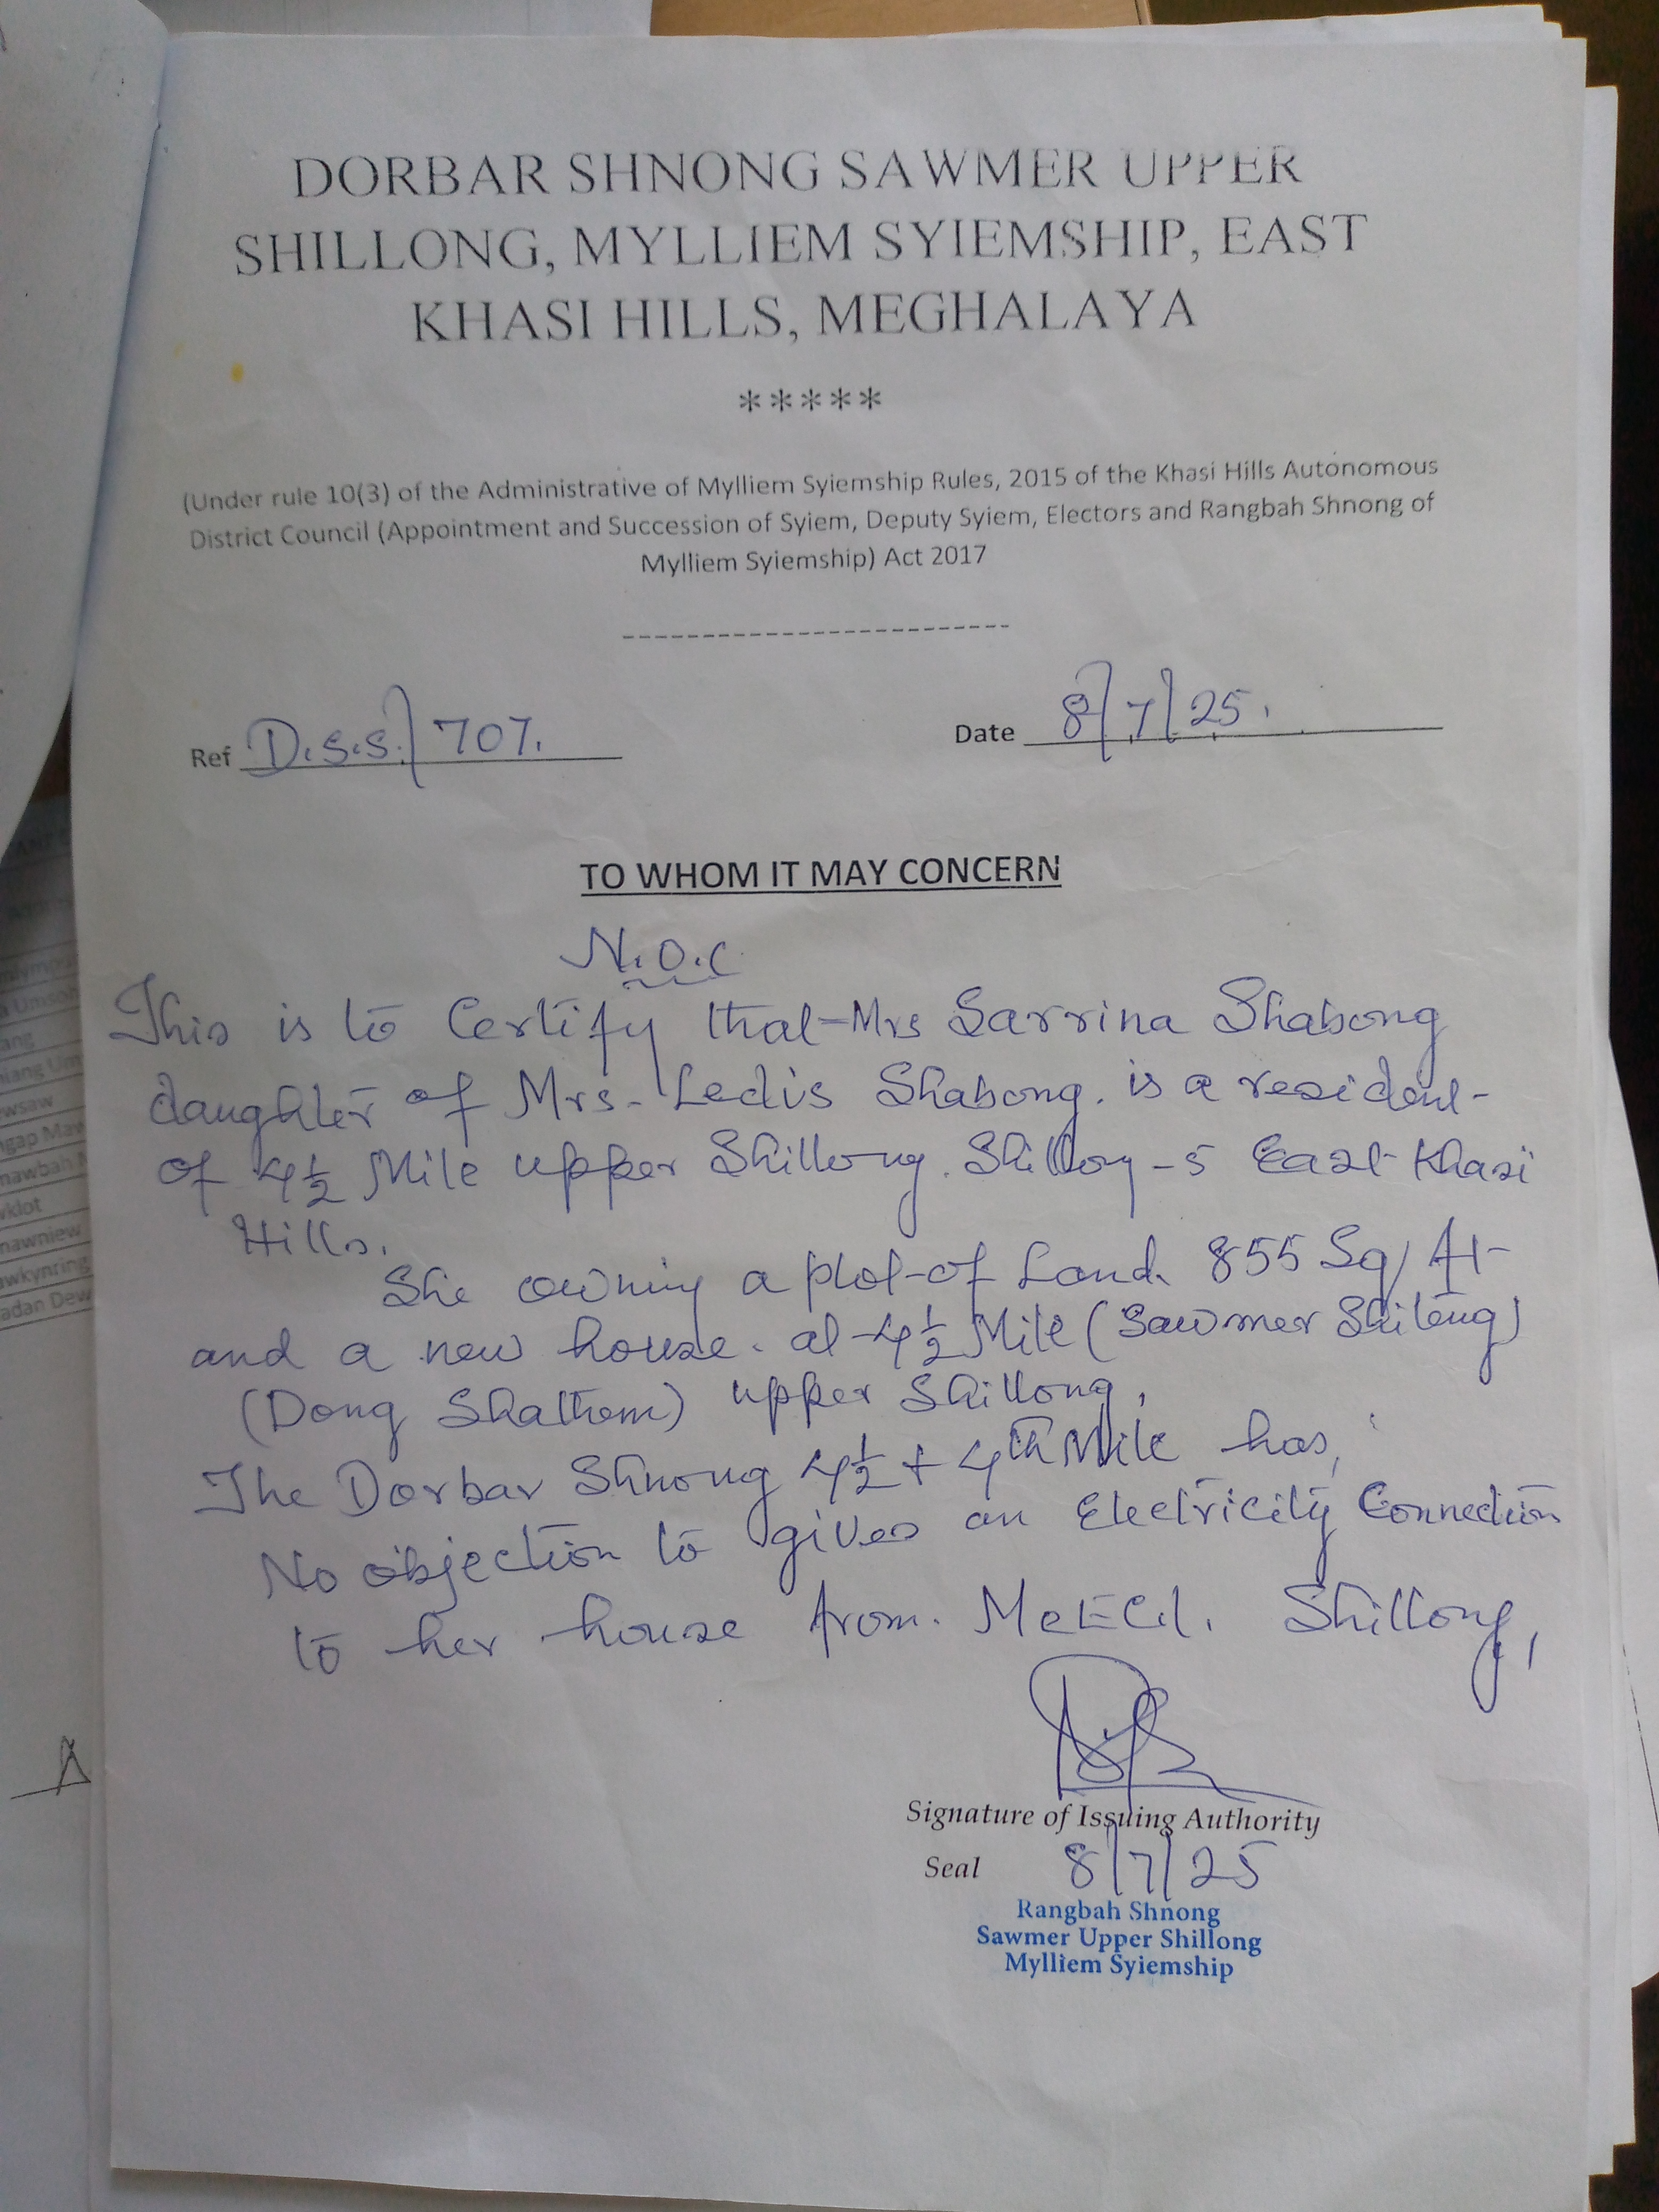 DORBAR SHNONG SAWMER UPPER
SHILLONG, MYLLIEM SYIEMSHIP, EAST
KHASI HILLS, MEGHALAYA
*****
(Under rule 10(3) of the Administrative of Mylliem Syiemship Rules, 2015 of the Khasi Hills Autonomous
District Council (Appointment and Succession of Syiem, Deputy Syiem, Electors and Rangbah Shnong of
Mylliem Syiemship) Act 2017
------------------------
Ref D.S.S./707. Date 8/7/25.
TO WHOM IT MAY CONCERN
N.O.C
This is to Certify that Mrs Sarrina Shabong
daughter of Mrs. Ledis Shabong. is a resident
of 4½ Mile upper Shillong. Shillong-5 East Khasi
Hills.
She owning a plot of Land. 855 Sq/ft
and a new house. at 4½ Mile (Sawmer Shiteng)
(Dong Shathem) upper Shillong,
The Dorbar Shnong 4½ + 4th Mile has,
No objection to gives an Electricity Connection
to her house from. MeECl. Shillong,
Signature of Issuing Authority
Seal 8/7/25
Rangbah Shnong
Sawmer Upper Shillong
Mylliem Syiemship